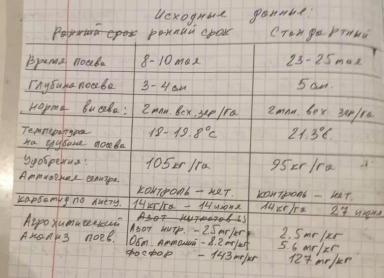 Исходные данные:
Ранний срок ранний срок Стандартный
Время посева 8-10 мая 23-25 мая
Глубина посева 3-4 см 5 см.
Норма высева: 2 млн. всх. зер/га 2 млн. всх зер/га
Температура на глубине посева 18-19.8°с 21.3°с.
Удобрения: 105 кг/га 95 кг/га
Аммиачная селитра. контроль - нет. контроль - нет.
Карбамид по листу. 14 кг/га - 14 июня 14 кг/га 27 июня
Агрохимический Азот нитратов
анализ почв. Азот нитр. - 25 мг/кг - 2.5 мг/кг
Обм. аммоний - 8.2 мг/кг 5.6 мг/кг
Фосфор - 143 мг/кг 127 мг/кг